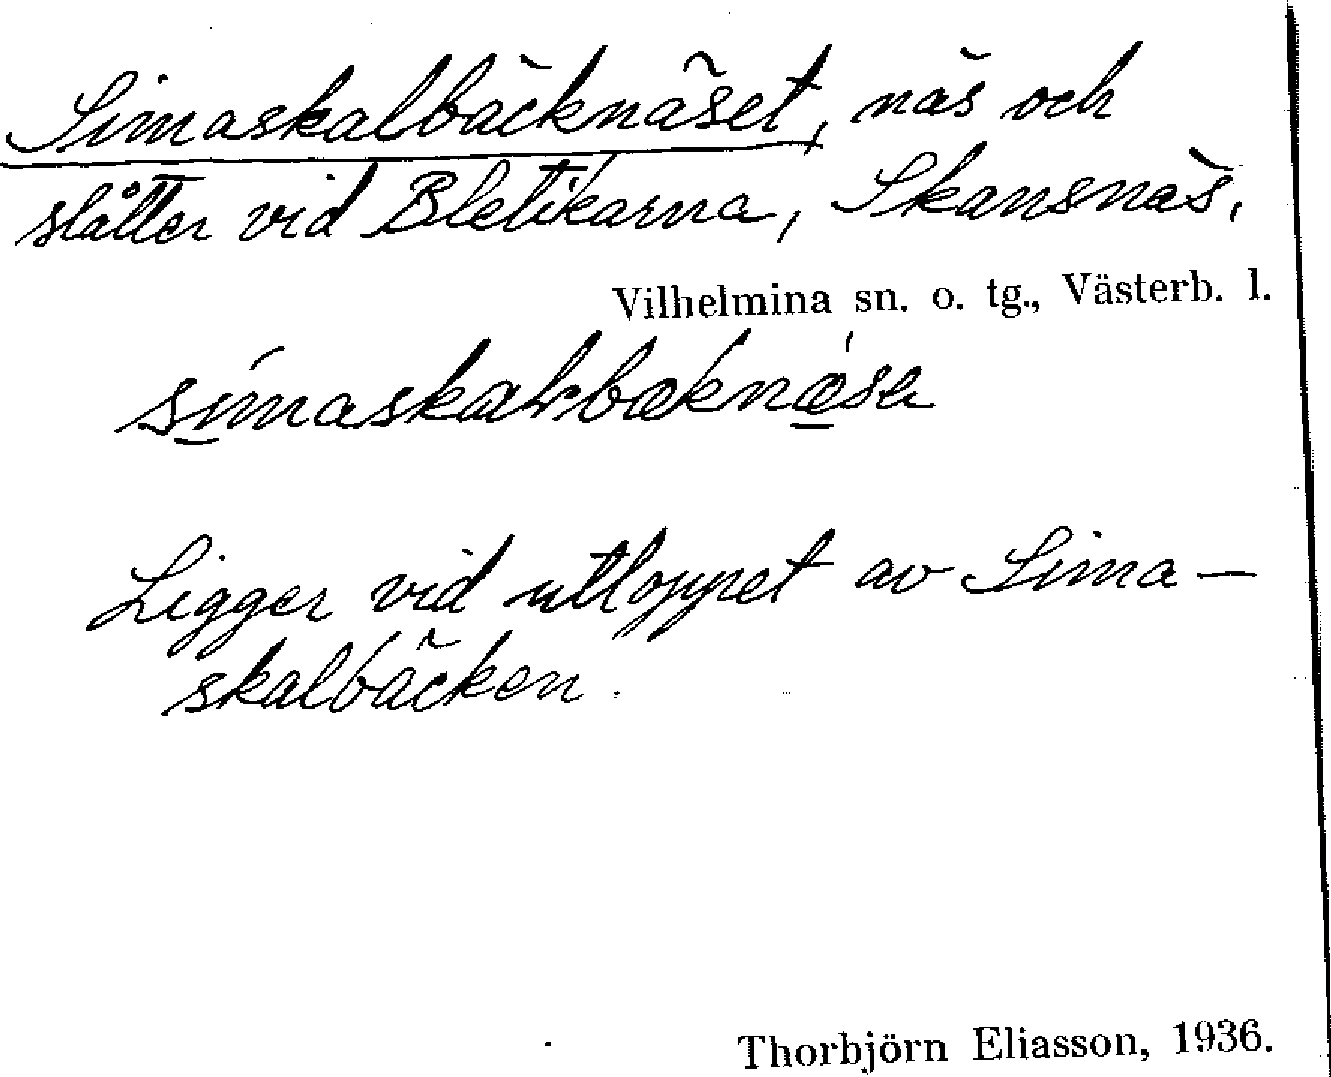 Simaskalbäcknäset, näs och
slåtter vid Bletikarna, Skansnäs,
Vilhelmina sn. o. tg., Västerb. l.
Ligger vid utloppet av Sima–
skalbäcken.
Thorbjörn Eliasson, 1936.